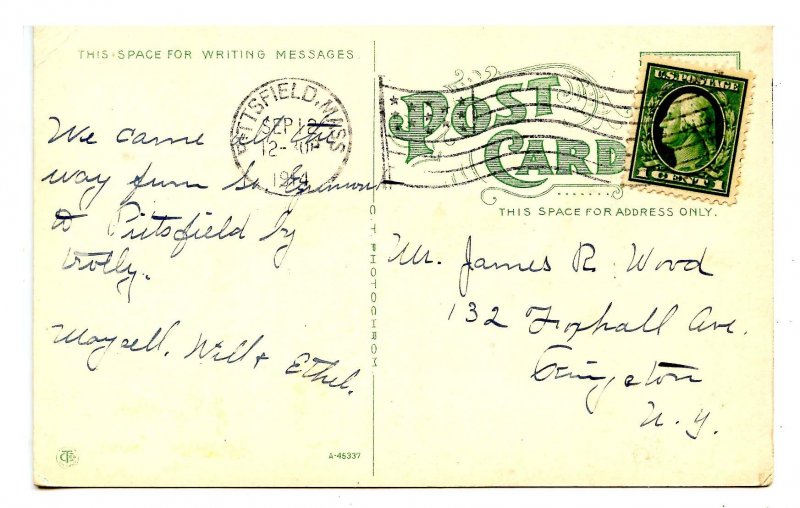 THIS SPACE FOR WRITING MESSAGES
PITTSFIELD, MASS.
SEP 12
12-30P
1914
We came all this
way from So.
to Pittsfield by
trolly.
Maysell, Will & Ethel.
C T PHOTOCHROM
A-45337
POST
CARD
U.S. POSTAGE
1 CENT 1
THIS SPACE FOR ADDRESS ONLY.
Mr. James R. Wood
132 Foxhall Ave.
Kingston
N.Y.